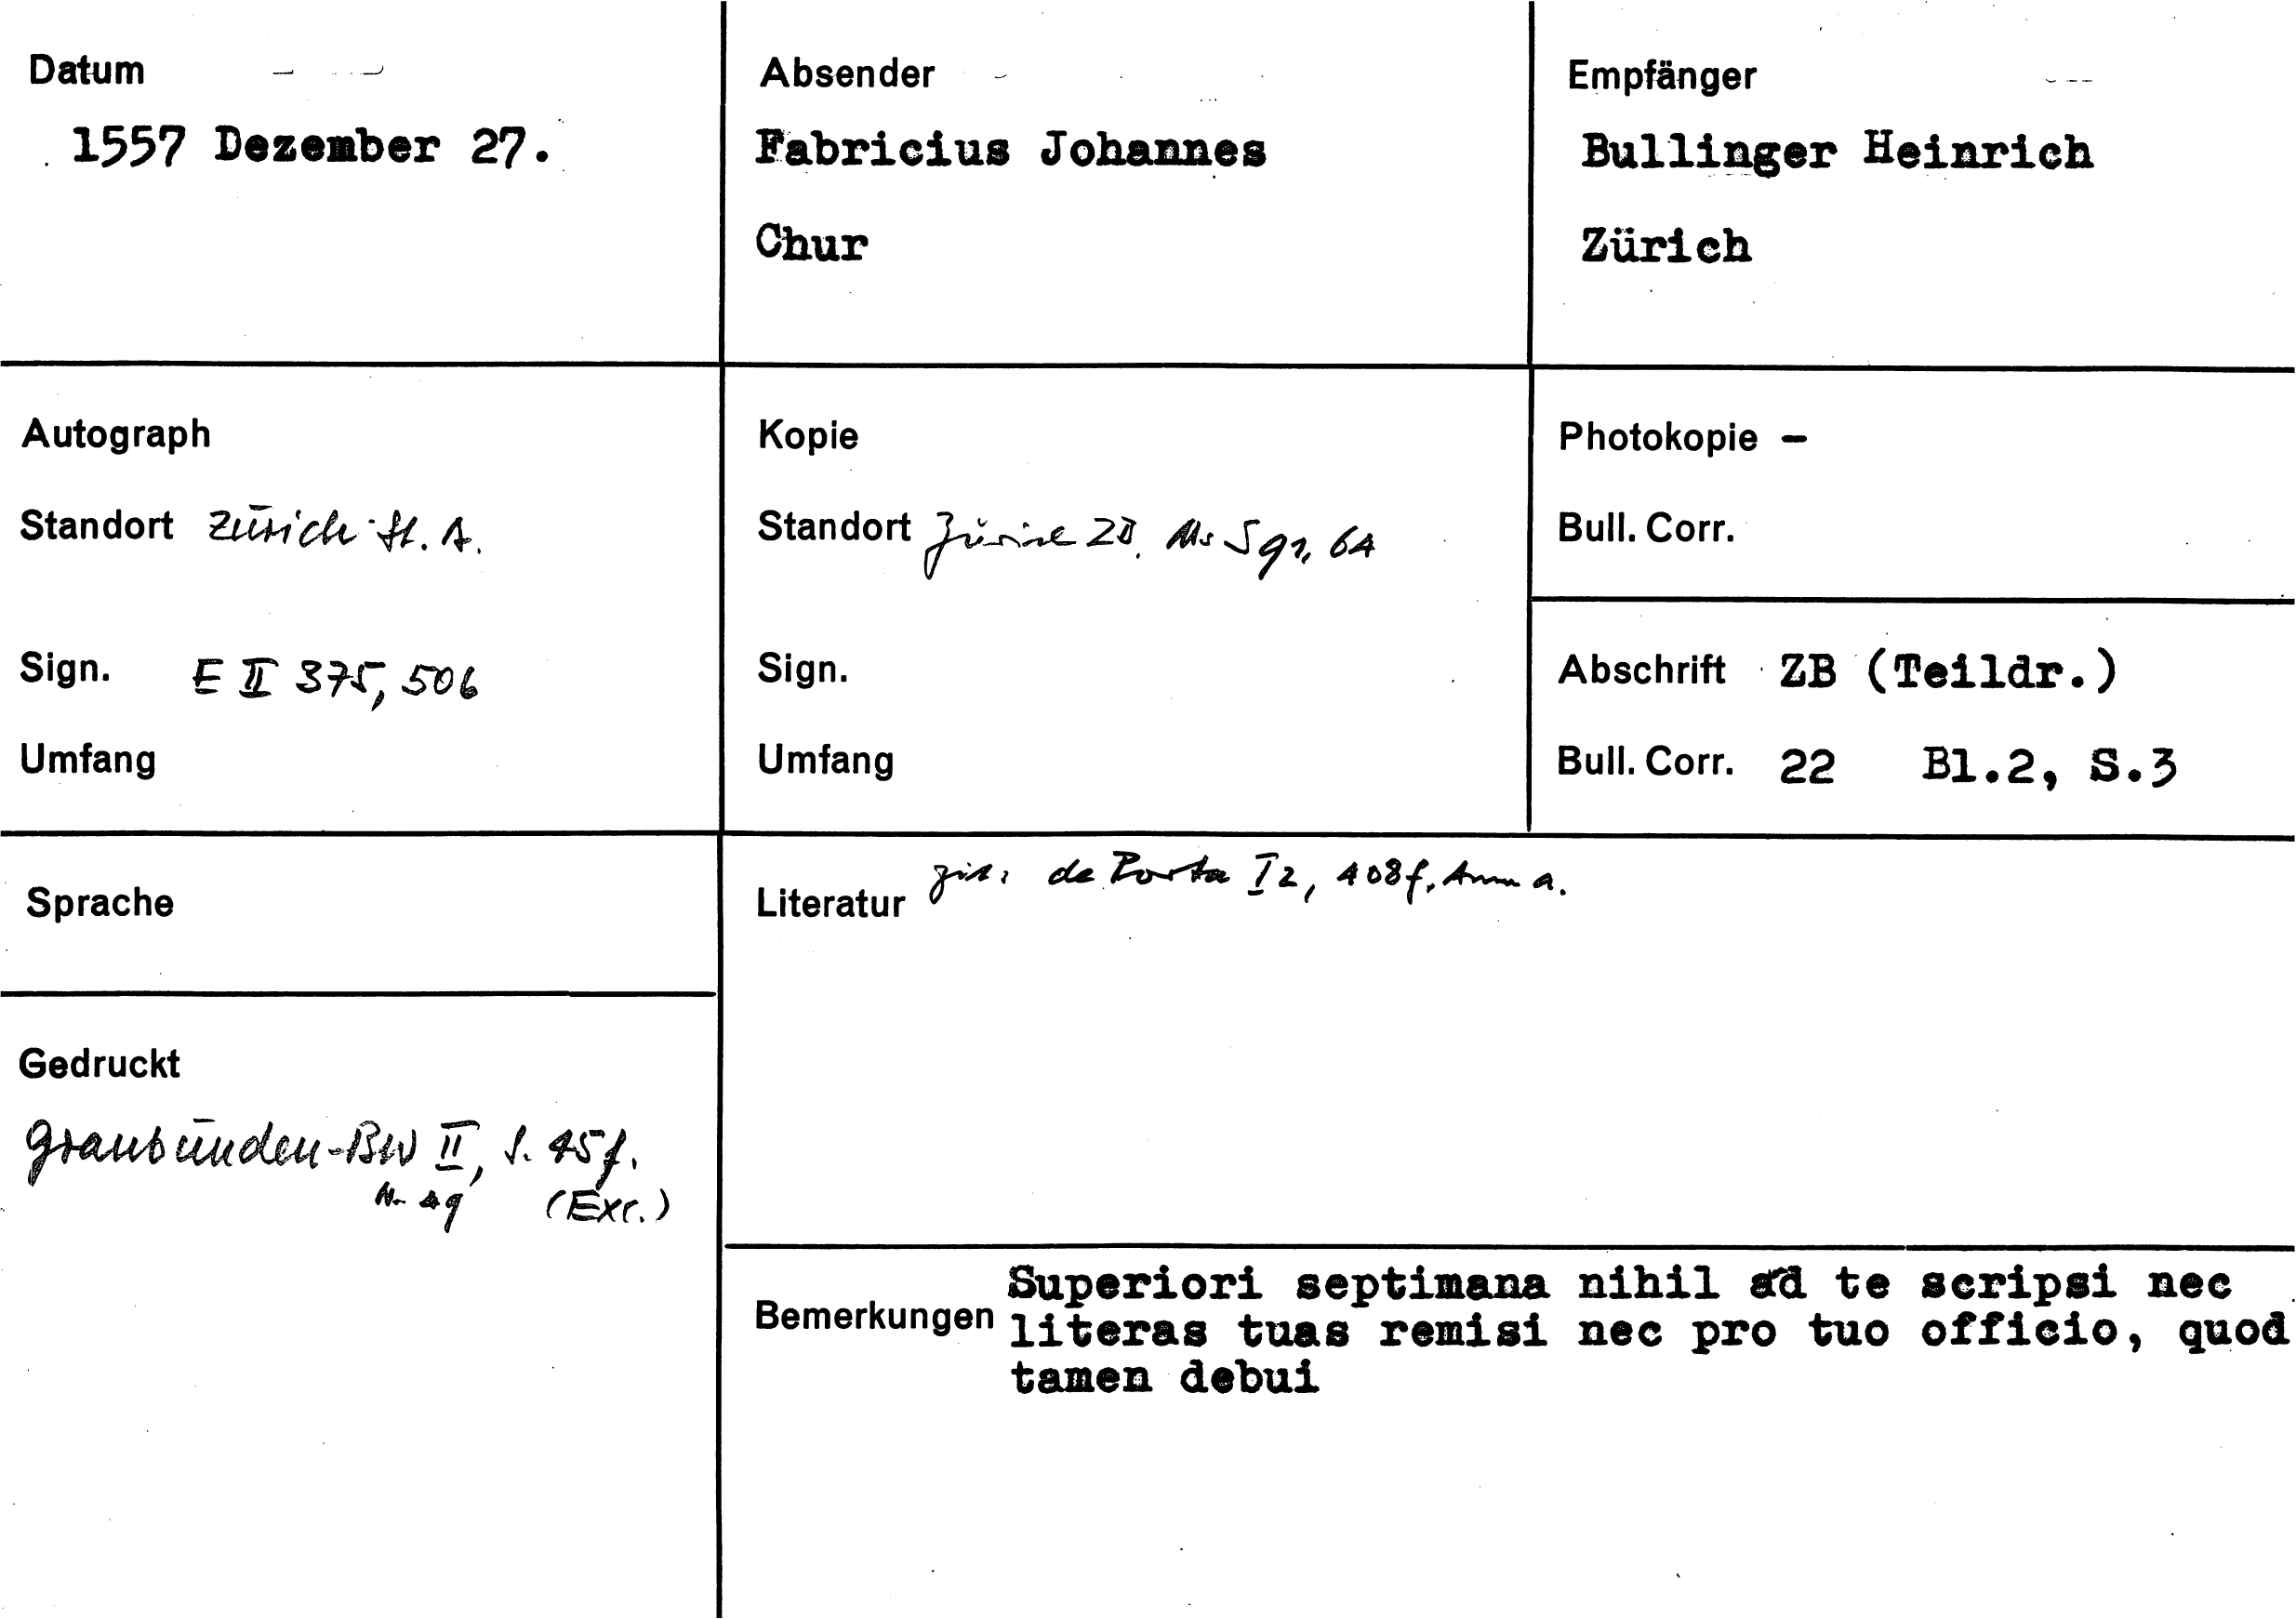 Datum
1557 Dezember 27.
Absender
Fabricius Johannes
Chur
Empfänger
Bullinger Heinrich
Zürich
Autograph
Standort Zürich St. A.
Sign. E II 375, 506
Umfang
Kopie
Standort Zürich ZB. Ms S 91, 64
Sign.
Umfang
Photokopie –
Bull. Corr.
Abschrift ZB (Teildr.)
Bull. Corr. 22 Bl.2, S.3
Sprache
Literatur zit: de Porta I 2, 408f, Anm a.
Gedruckt
Graubünden-BW II, S. 45f.
(Exc.)
Bemerkungen
Superiori septimana nihil ad te scripsi nec
literas tuas remisi nec pro tuo officio, quod
tamen debui